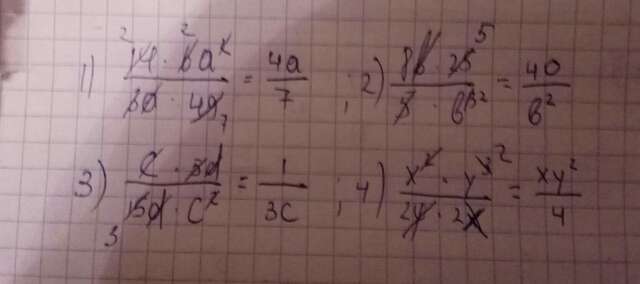 1) \frac{14 · 6a²}{3a · 49} = \frac{4a}{7} ; 2) \frac{8b · 25}{5 · b³} = \frac{40}{b²}
3) \frac{c · 5d}{15d · c²} = \frac{1}{3c} ; 4) \frac{x² · y³}{2y · 2x} = \frac{xy²}{4}